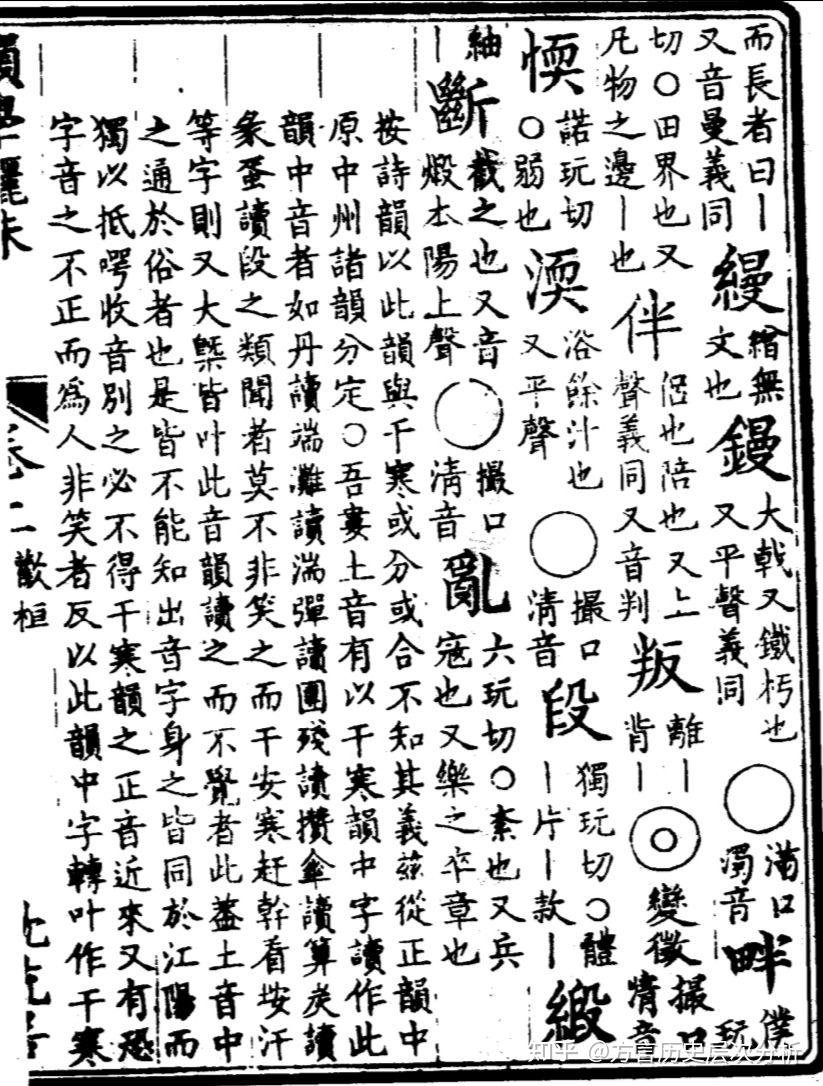 而長者曰丨又音曼義同 縵 繒無文也 鏝 大戟又鐵杇也又平聲義同 ○ 滿口濁音 畔 僕玩
切○田界也又凡物之邊丨也 伴 侶也陪也又上聲義同又音判 叛 離丨背丨 ◎ 變徵 撮口清音
愞 諾玩切○弱也 渜 浴餘汁也又平聲 ○ 撮口清音 段 獨玩切○體丨片丨款丨 緞
紬丨 斷 截之也又音煅本陽上聲 ○ 撮口清音 亂 六玩切○紊也又兵寇也又樂之卒章也
按詩韻以此韻與干寒或分或合不知其義茲從正韻中
原中州諸韻分定○吾婁土音有以干寒韻中字讀作此
韻中音者如丹讀端灘讀湍彈讀團殘讀攢傘讀算炭讀
彖蛋讀段之類聞者莫不非笑之而干安寒赶幹看垵汗
等字則又大槩皆叶此音韻讀之而不覺者此葢土音中
之通於俗者也是皆不能知出音字身之皆同於江陽而
獨以抵咢收音別之必不得干寒韻之正音近來又有恐
字音之不正而爲人非笑者反以此韻中字轉叶作干寒
卷二 歡桓
知乎 @方言历史层次分析